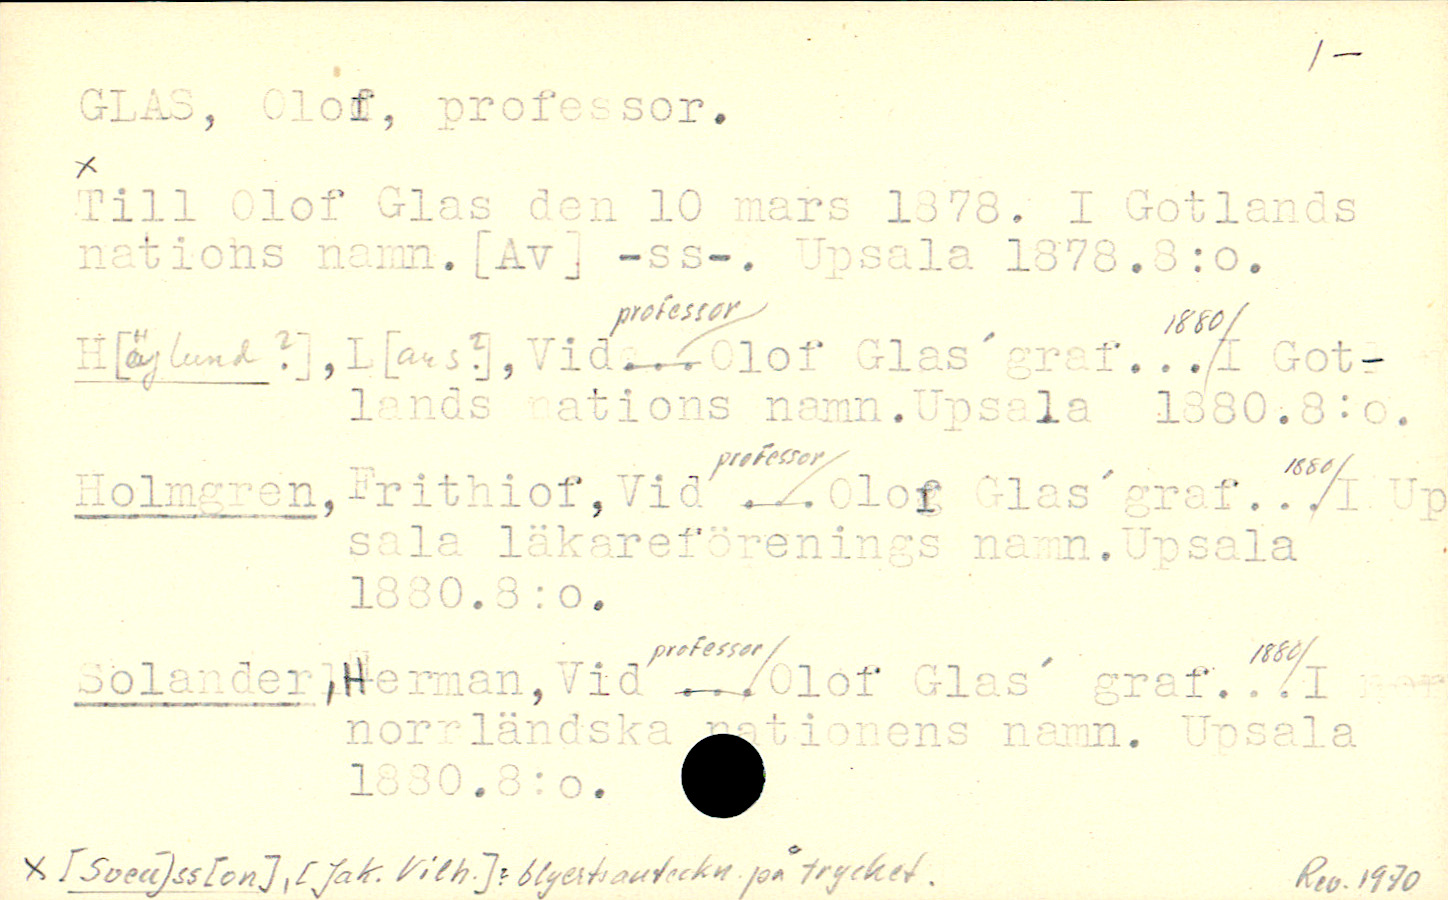 1 —
GLAS, Olof, professor.
x
Till Olof Glas den 10 mars 1878. I Gotlands
nations namn.[Av] -ss-. Upsala 1878.8:o.
professor 1880/
H[äglund ?], L[ars?], Vid...Olof Glas´graf.../I Got-
lands nations namn.Upsala 1880.8:o.
professor/ 1880/
Holmgren, Frithiof, Vid ...Olof Glas´graf.../I Up
sala läkareförenings namn.Upsala
1880.8:o.
professor/ 1880/
Solander, Herman, Vid ...Olof Glas´ graf.../I
norrländska nationens namn. Upsala
1880.8:o.
x [Sven]ss[on], [Jak. Vilh.]? blyertsanteckn. på trycket.
Rev. 1970